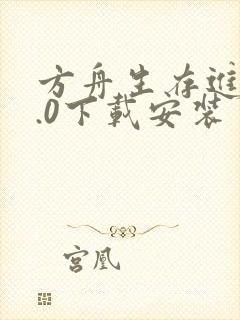 方舟生存進
.0下載安裝
宮凰